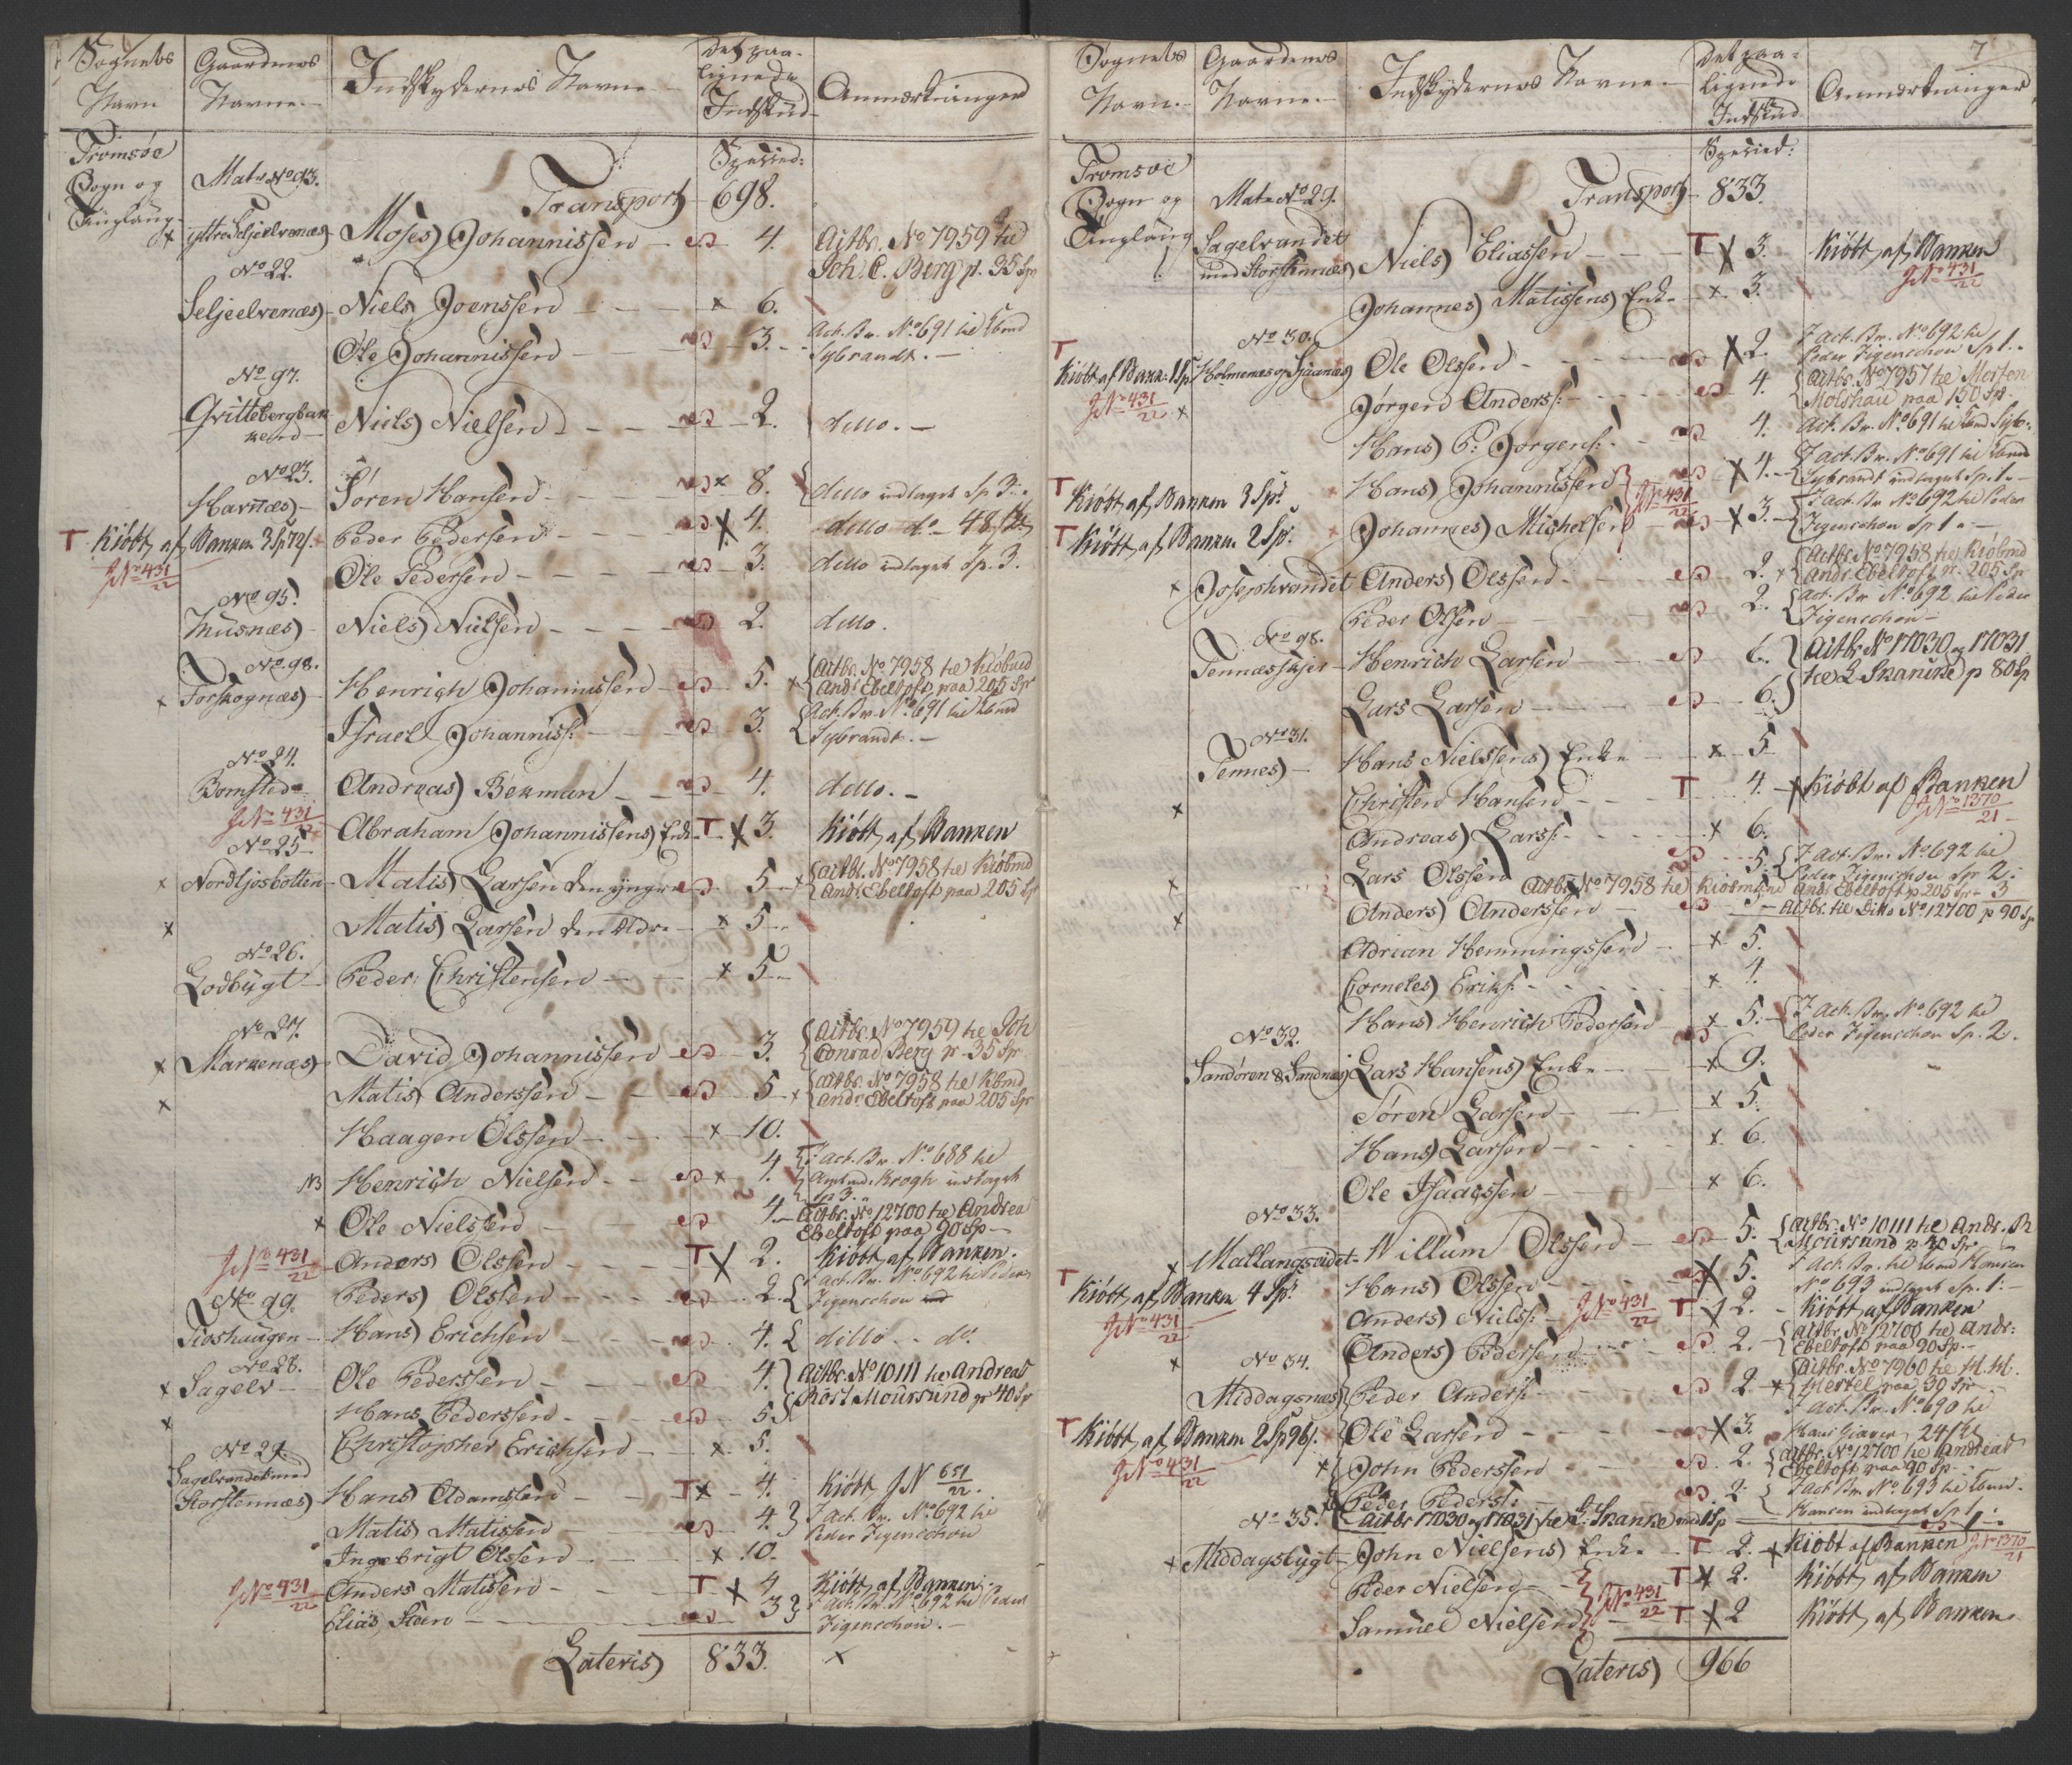 Sognets
Navn
Gaardenes
Navne
Indskydernes Navne
Det paa-
lignede
Indskud
Anmærkninger
Tromsøe
Sogn og
Tinglaug
Matr No 93.
Transport
Specied:
698.
yttre Seljeelvenæs
Moses Johannissen
4.
Actbr. No 7959 til
Joh. C. Berg pr. 35 Sp
No 22.
Seljeelvenæs
Niels Joenssen
x 6.
Ole Johannissen
3.
Act. Br. No 691 til Kbmd
Sybrandt.
No 97.
Qvittebergbak-
ken
Niels Nielsen
2.
ditto.
No 23.
Havnæs
Søren Hansen
x 8.
ditto indtaget Sp 3.
T Kiøbt af Banken 3 Sp 72 s.
Peder Pedersen
x 4.
ditto do 48 s
J No 431/22
Ole Pedersen
3.
ditto indtaget Sp. 3.
No 95.
Musnæs
Niels Nielsen
2.
ditto.
No 98.
x Forskognæs
Henrich Johannissen
5.
x Actbr. No 7958 til Kiøbmd
Andr. Ebeltoft paa 205 Sp
Israel Johanniss:
3.
Act. Br. No 691 til Kbmd
Sybrandt.
No 24.
Bomsted
Andreas Bekman
4.
ditto.
J No 431/22
Abraham Johannissens Enke
T x 3.
Kiøbt af Banken
No 25
x Nordkjosbotten
Matis Larsen den yngre
5
x Actbr. No 7958 til Kiøbmd
Andr. Ebeltoft paa 205 Sp
x
Matis Larsen den Ældre
x 5
No 26.
Godbygt
Peder Christensen
x 5
No 27.
x Markenæs
David Johannissen
3.
Actbr. No 7959 til Joh
Conrad Berg pr 35 Sp
x
Matis Anderssen
5
x Actbr. No 7958 til Kbmd
Andr. Ebeltoft paa 205 Sp
Haagen Olssen
x 10.
N3
Henrich Nielsen
x 4.
Act. Br. No 688 til
Amtmd. Krogh indtaget
Sp 3.
x
Ole Nielssen
4.
Actbr. No 12700 til Andrea
Ebeltoft paa 90 Sp
J No 431/22
Anders Olssen
T x 2.
Kiøbt af Banken.
Peders Olssen
2.
Act. Br. No 692 til Peder
Figenschou
No 99.
Kioshaugen
Hans Erichsen
4.
ditto do.
No 28.
x Sagelv
Ole Pederssen
4.
Actbr. No 10111 til Andreas
Røst Moursund pr 40 Sp
x
Hans Pederssen
5
Christopher Erichsen
x 5.
No 29
Sagelvandet med
Storstennæs
Hans Adamssen
T x 4.
Kiøbt J N 651/22.
Matis Matissen
4.
Act. Br. No 692 til
Peder Figenschou
Ingebrigt Olssen
x 10.
J No 431/22
Anders Matissen
T x 4
Kiøbt af Banken
Elias Steen
3
Act. Br. No 692 til Peder
Figenschou.
Lateris
833.
x
7
Sognets
Navn.
Gaardenes
Navne.
Indskydernes Navne
Det paa-
lignede
Indskud
Anmærkninger
Tromsøe
Sogn og
Tinglaug
Matr No 29.
Transport
Specied:
833.
Sagelvandet
med Storstennæs
Niels Eliassen
T x 3.
Kiøbt af Banken
J No 431/22
Johannes Matissens Enke
x 3.
No 30.
T
Kiøbt af Bank: 1 Sp
Holmenæs og Sjaanæs
Ole Olssen
x 2.
Act. Br. No 692 til
Peder Figenschou Sp 1.
J No 431/22 x
Jørgen Anders:
4
Actbr. No 7957 til Morten
Molshau paa 150 Sp
Hans P: Jørgens:
4.
Act. Br. No 691 til Kbmd Syb:
T Kiøbt af Banken 3 Sp:
Hans Johannissen
x 4.
Act. Br. No 691 til Kbmd
Sybrandt indtaget Sp. 1.
J No 431/22
T Kiøbt af Banken 2 Sp:
Johannes Michelsen
x 3.
Act. Br No 692 til Peder
Figenschou Sp 1.
x Josephvandet
Anders Olssen
2.
x Actbr. No 7958 til Kiøbmd
Andr. Ebeltoft pr. 205 Sp
Peder Olsen
2.
Act. Br No 692 til Peder
Figenschou
No 98.
Tennæsskjer
Henrich Larsen
6.
Actbr No 17030 og 17031
til L Skancke p 80 Sp
Lars Larsen
6.
No 31.
Tennes
Hans Nielssens Enke
x 5
x
Christen Hansen
T 4.
x Kiøbt af Banken
J No 1370/21
Andreas Larss:
x 6.
x
Lars Olssen
5.
Act. Br. No 692 til
Peder Figenschou Sp 2.
Actbr No 7958 til Kiøbmand Andr. Ebeltoft p 205 Sp 3
x
Anders Anderssen
5
Actbr. til Ditto No 12700 p 90 Sp
Adrian Hemmingssen
x 5.
Corneles Eriks:
x 4.
Hans Henrich Pedersen
x 5.
Act. Br. No 692 til
Peder Figenschou Sp. 2.
No 32.
Sandøren & Sandnæs
Lars Hansens Enke
x 9.
Søren Larsen
x 5.
Hans Larsen
x 6.
Ole Isaacssen
x 6.
No 33.
x Mallangseidet
Willum Olssen
5.
Actbr. No 10111 til Andr. R
Moursund p 30 Sp
T
Kiøbt af Banken 4 Sp:
Hans Olssen
x 5.
Act. Br. til Kbmd Hansen
No 693 indtaget Sp. 1:
J No 431/22
Anders Niels:
J No 431/22
T x 2.
Kiøbt af Banken
x
No 34.
Anders Pedersen
2.
Actbr. No 12700 til Andr:
Ebeltoft paa 90 Sp
Middagsnæs
Peder Anders:
2
x Actbr. No 7960 til M. M.
Hertel paa 30 Sp
T
Kiøbt af Banken 2 Sp 96 s.
Ole Larsen
x 3.
Act. Br. No 690 til
Hans Giæver 24 s
J No 431/22
x
John Pederssen
2
Actbr. No 12700 til Andreas
Ebeltoft paa 90 Sp
Peder Peders:
2.
Act. Br No 693 til Kbmd
Hansen indtaget Sp 1
No 35.
Actbr 17030 og 17031 til L: Skancke med 1 Sp
1
x Middagsbygt
John Nielsens Enke
T 2.
x Kiøbt af Banken J No 1370/21
Peder Nielsen
T x 2.
Kiøbt af Banken
J No 431/22
Samuel Nielsen
T x 2
Kiøbt af Banken
Lateris
966